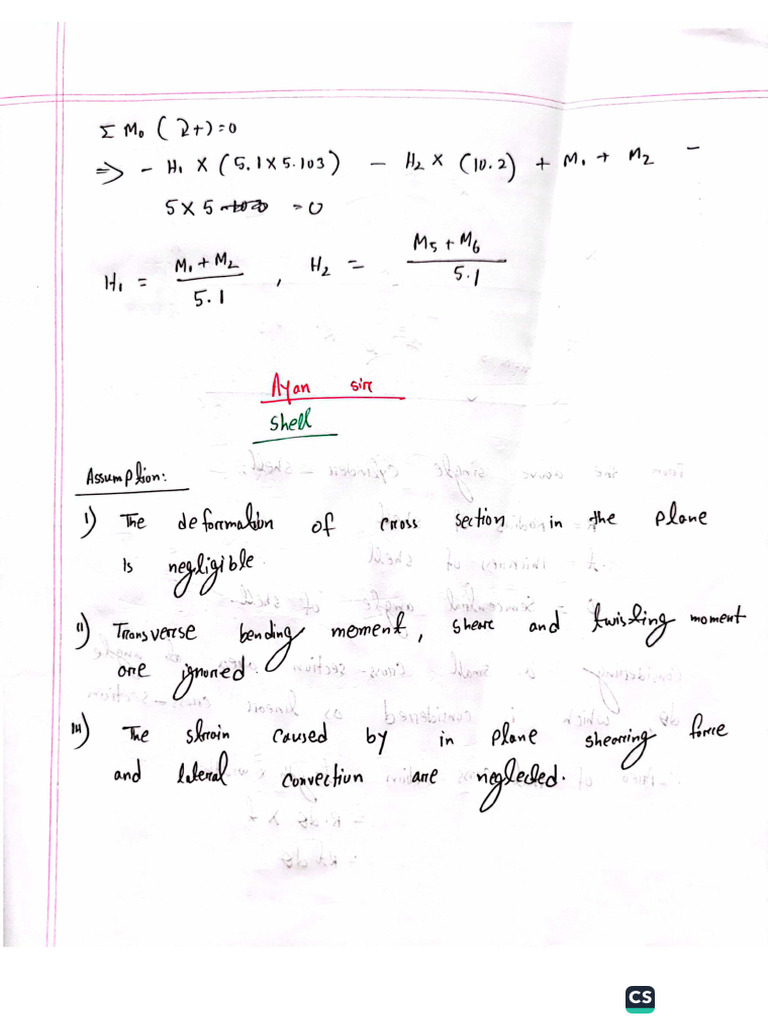 Σ M₀ (↻+) = 0
=> - H₁ × (5.1×5.103) - H₂ × (10.2) + M₁ + M₂ -
5×5 = 0
H₁ = (M₁ + M₂)/5.1 , H₂ = (M₅ + M₆)/5.1
Ayan sir
Shell
Assumption:
i) The deformation of cross section in the plane
is negligible.
ii) Transverse bending moment, shear and twisting moment
are ignored.
iii) The strain caused by in plane shearing force
and lateral convection are neglected.
CS